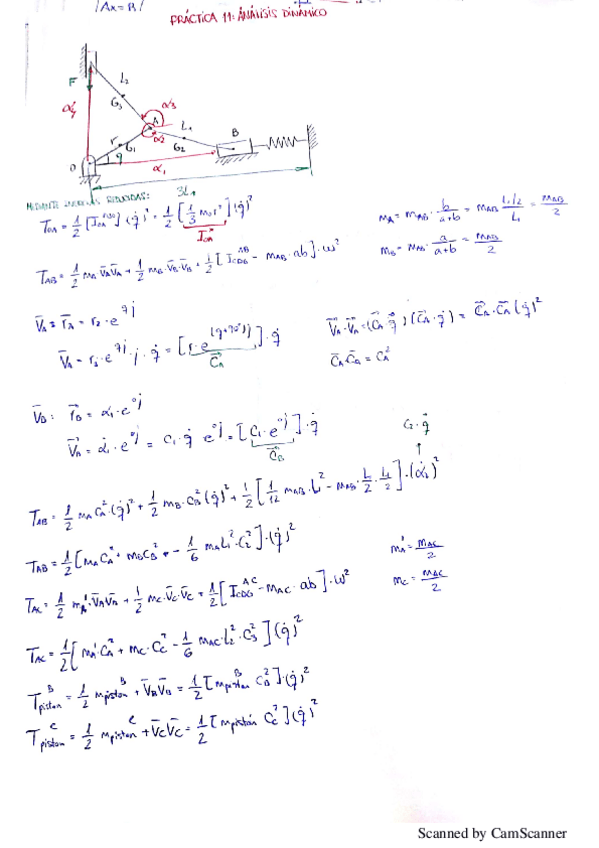 |Ax=B|
PRÁCTICA 11: ÁNÁLISIS DINÁMICO
L₂
F
G₃
α₃
α₄
A
r
G₁
α₂
L₁
G₂
B
O
q
α₁
3L₁
MEDIANTE INERCIAS REDUCIDAS:
T_OA = 1/2 [I_OA] (q̇)² = 1/2 [1/3 m₀r²] (q̇)²
I_OA
m_A = m_AB · b/(a+b) = m_AB (L₁/2)/L₁ = m_AB/2
m_B = m_AB · a/(a+b) = m_AB/2
T_AB = 1/2 m_A V̄_A V̄_A + 1/2 m_B · V̄_B · V̄_B + 1/2 [I_CDG^AB - m_AB · ab] · ω²
V̄_A = r̄_A = r₂ · e^qj
V̄_A = r₂ · e^qj · j · q̇ = [r · e^(q+90°)j] · q̇
C̄_A
V̄_A · V̄_A = (C̄_A q̇) (C̄_A · q̇) = C̄_A · C̄_A (q̇)²
C̄_A C̄_A = C_A²
V̄_B : r̄_B = α₁ · e^0j
V̄_B = α̇₁ · e^0j = C₁ · q̇ e^0j = [C₁ · e^0j] · q̇
C̄_B
C₁ · q̇
T_AB = 1/2 m_A C_A² · (q̇)² + 1/2 m_B · C_B² (q̇)² + 1/2 [1/12 m_AB · L² - m_AB · L/2 · L/2] · (α̇₁)²
T_AB = 1/2 [m_A C_A² + m_B C_B² + - 1/6 m_A L₁² · C₂²] · (q̇)²
m_A' = m_AC/2
m_C = m_AC/2
T_AC = 1/2 m_A' · V̄_A V̄_A + 1/2 m_C · V̄_C · V̄_C + 1/2 [I_CDG^AC - m_AC · ab] · ω²
T_AC = 1/2 [m_A' · C_A² + m_C · C_C² - 1/6 m_AC · L₂² · C₃²] (q̇)²
T_piston^B = 1/2 m_piston^B + V̄_B V̄_B = 1/2 [m_piston C_B²] · (q̇)²
T_piston^C = 1/2 m_piston^C + V̄_C V̄_C = 1/2 [m_pistón C_C²] (q̇)²
Scanned by CamScanner